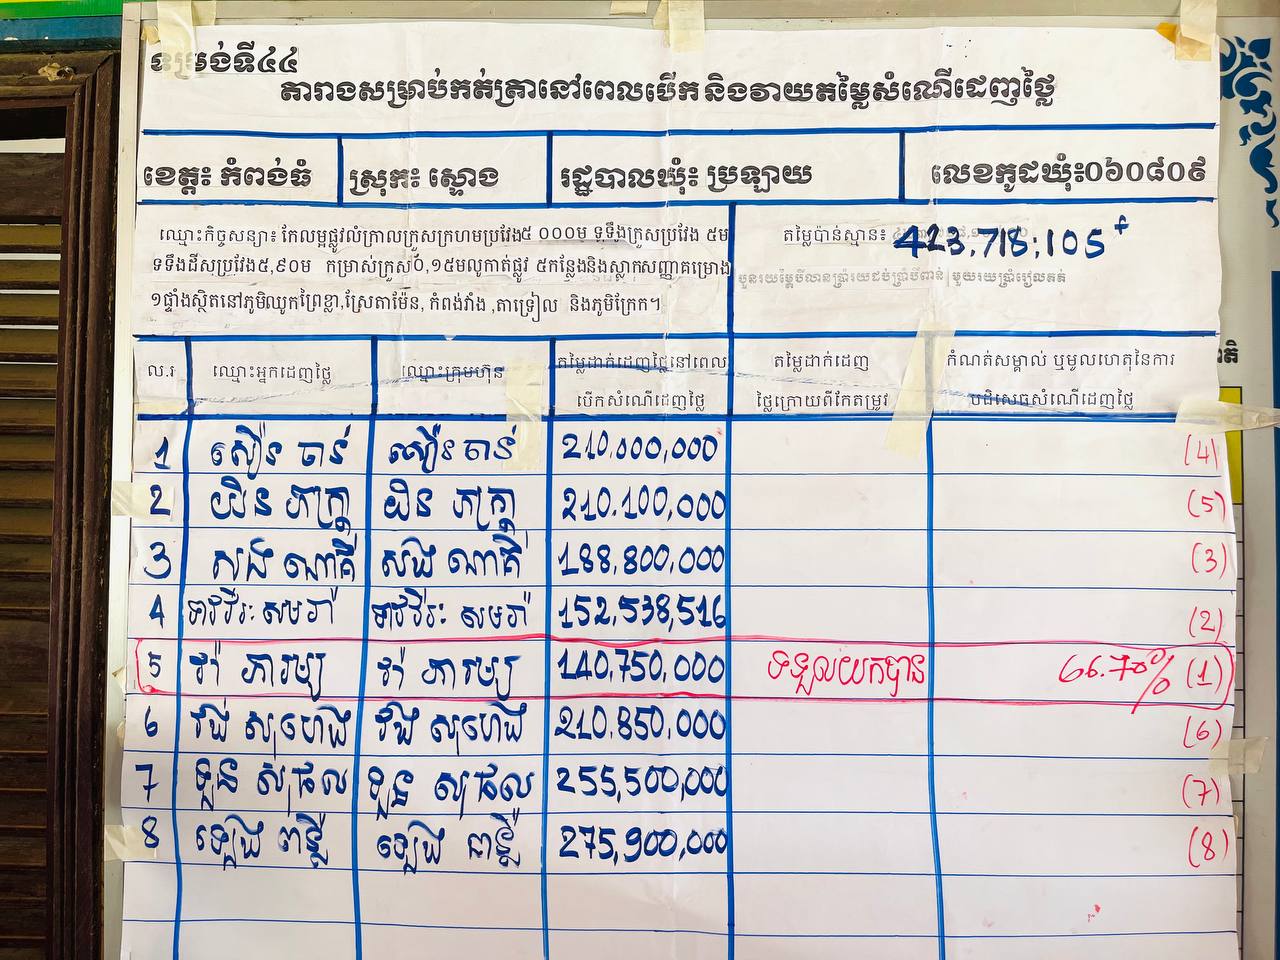 ទម្រង់ទី៤៤
តារាងសម្រាប់កត់ត្រានៅពេលបើក និងវាយតម្លៃសំណើដេញថ្លៃ
ខេត្ត៖ កំពង់ធំ ស្រុក៖ ស្ទោង រដ្ឋបាលឃុំ៖ ប្រឡាយ លេខកូដឃុំ៖០៦០៨០៩
ឈ្មោះកិច្ចសន្យា៖ កែលម្អផ្លូវលំក្រាលគ្រួសក្រហមប្រវែង៥ ០០០ម ទទឹងគ្រួសប្រវែង ៥ម
ទទឹងដីសប្រវែង៥,៩០ម កម្រាស់គ្រួស0,១៥មលូកាត់ផ្លូវ ៥កន្លែងនិងស្លាកសញ្ញាគម្រោង
១ផ្ទាំងស្ថិតនៅភូមិឈូកព្រៃខ្លា,ស្រែតាម៉ែន, កំពង់វាំង ,តាទ្រៀល និងភូមិក្រែក។
តម្លៃប៉ាន់ស្មាន៖ 423,718,105 ៛
ល.រ ឈ្មោះអ្នកដេញថ្លៃ ឈ្មោះក្រុមហ៊ុន តម្លៃដាក់ដេញថ្លៃនៅពេល តម្លៃដាក់ដេញ កំណត់សម្គាល់ ឬមូលហេតុនៃការ
បើកសំណើដេញថ្លៃ ថ្លៃក្រោយពីកែតម្រូវ បដិសេធសំណើដេញថ្លៃ
1 សឿន ចាន់ សឿន ចាន់ 210,000,000 (4)
2 យិន ភក្ត្រា យិន ភក្ត្រា 210,100,000 (5)
3 សុង ណាគី សុង ណាគី 188,800,000 (3)
4 សមរ៉ា សមរ៉ា 152,538,516 (2)
5 វ៉ា ភារម្យ វ៉ា ភារម្យ 140,750,000 ទទួលយកបាន 66.78% (1)
6 វង់ សុហេង វង់ សុហេង 210,850,000 (6)
7 ទូន សុផល ទូន សុផល 255,500,000 (7)
8 ឡេង ពន្លឺ ឡេង ពន្លឺ 275,900,000 (8)